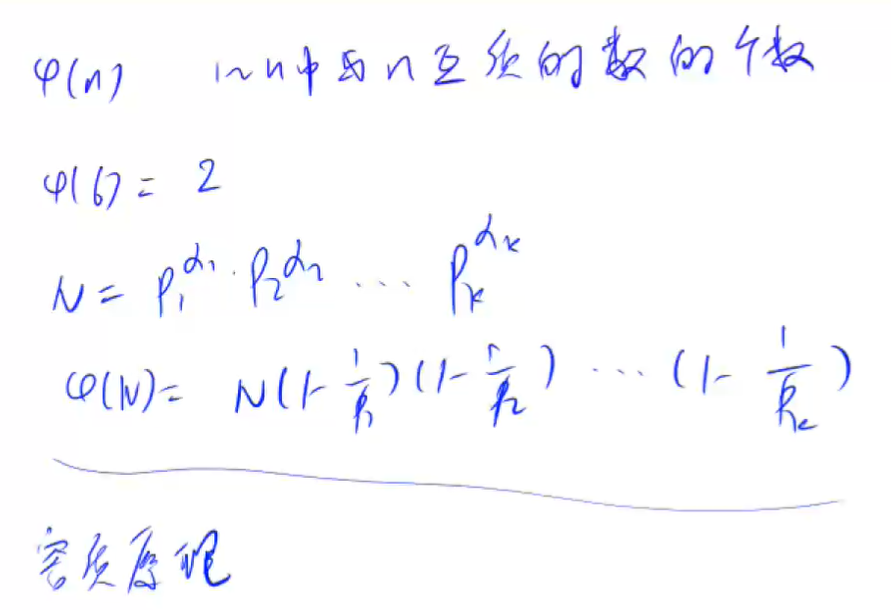 φ(n) 1~n中与n互质的数的个数
φ(6) = 2
N = P₁^α₁ · P₂^α₂ ... Pₖ^αₖ
φ(N) = N(1-1/P₁)(1-1/P₂) ... (1-1/Pₖ)
容质原理